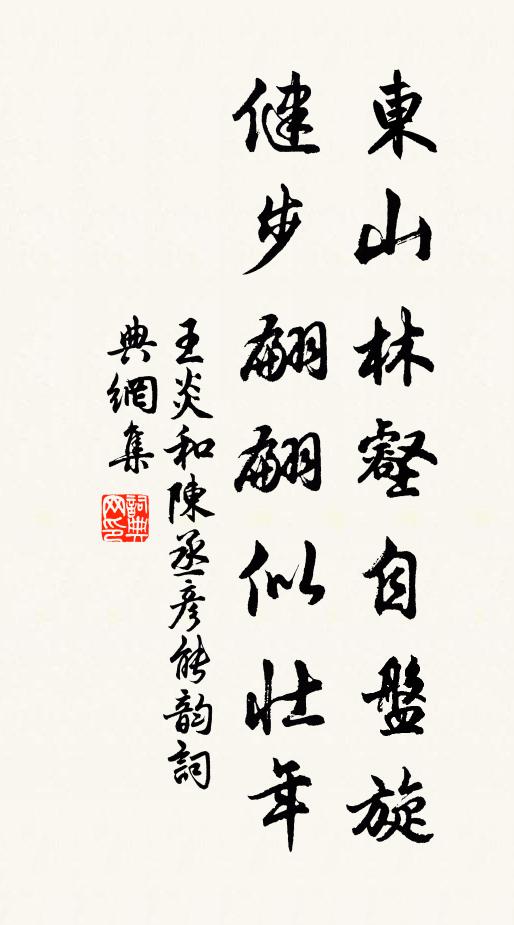 東山林壑自盤旋
健步翩翩似壯年
王炎和陳丞彥能韵詞
典網集
詞典網印